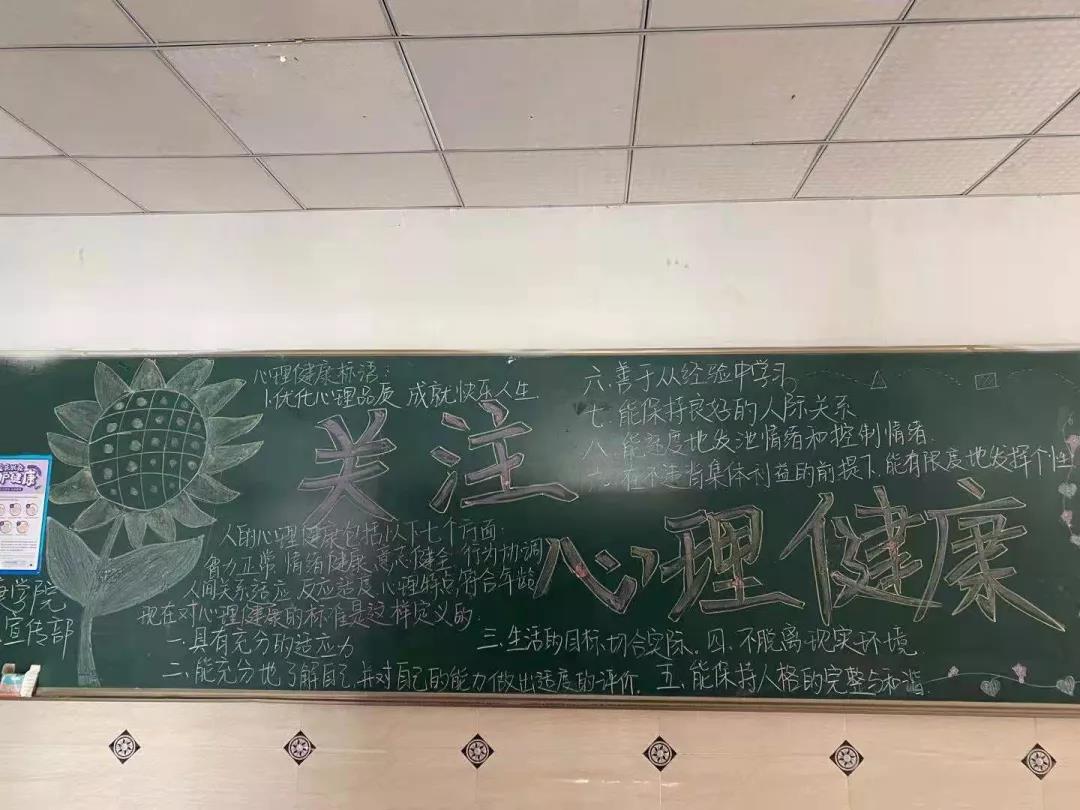 心理健康标语:
1.优化心理品质 成就快乐人生
关注
心理健康
人的心理健康包括以下七个方面:
智力正常 情绪健康 意志健全 行为协调
人间关系适应 反应适度 心理特点符合年龄
现在对心理健康的标准是这样定义的:
一.具有充分的适应力
二.能充分地了解自己,并对自己的能力做出适度的评价.
三.生活的目标切合实际.
四.不脱离现实环境
五.能保持人格的完整与和谐.
六.善于从经验中学习
七.能保持良好的人际关系
八.能适度地发泄情绪和控制情绪.
在不违背集体利益的前提下,能有限度地发挥个性
护健康
学院
宣传部